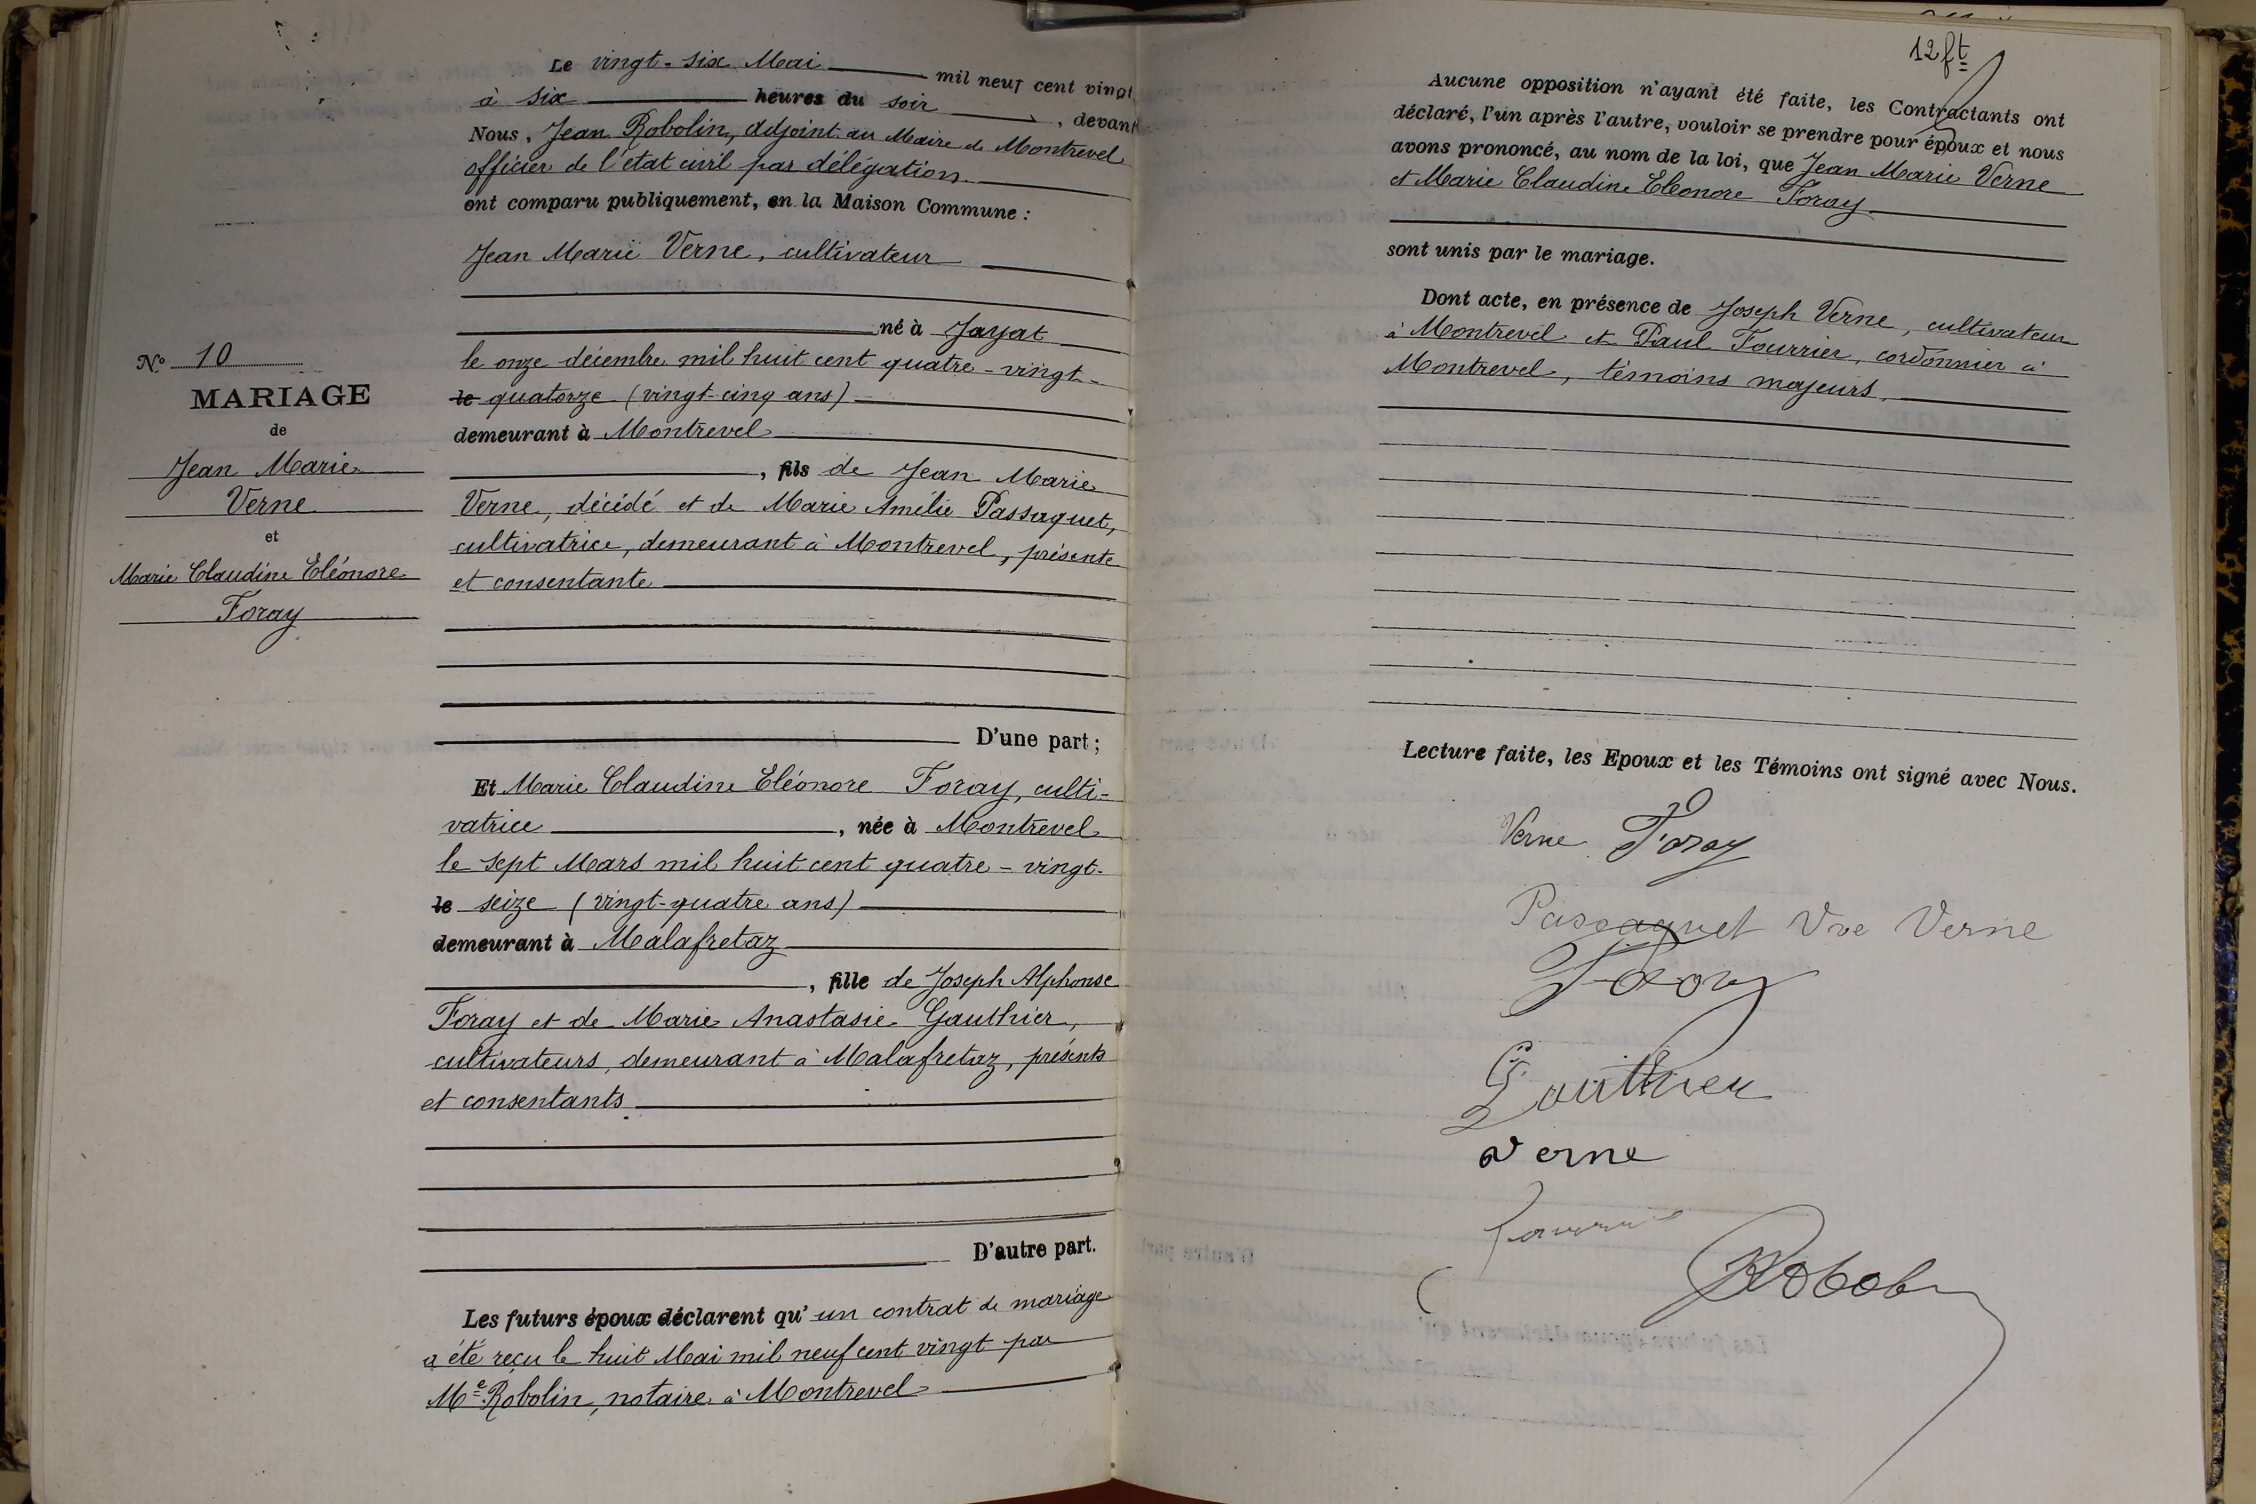 Le vingt-six Mai mil neuf cent vingt
à six heures du soir, devant
Nous, Jean Robolin, adjoint au Maire de Montrevel
officier de l'état civil par délégation
ont comparu publiquement, en la Maison Commune :
Jean Marie Verne, cultivateur
né à Jayat
le onze décembre mil huit cent quatre-vingt-
le quatorze (vingt-cinq ans)
demeurant à Montrevel
, fils de Jean Marie
Verne, décédé et de Marie Amélie Passaquet,
cultivatrice, demeurant à Montrevel, présente
et consentante
D'une part ;
Et Marie Claudine Eléonore Foray, culti-
vatrice, née à Montrevel
le sept Mars mil huit cent quatre-vingt-
le seize (vingt-quatre ans)
demeurant à Malafretaz
, fille de Joseph Alphonse
Foray et de Marie Anastasie Gauthier,
cultivateurs, demeurant à Malafretaz, présents
et consentants
D'autre part.
Les futurs époux déclarent qu'un contrat de mariage
a été reçu le huit Mai mil neuf cent vingt par
Me Robolin, notaire à Montrevel
No 10
MARIAGE
de
Jean Marie
Verne
et
Marie Claudine Eléonore
Foray
12 ft
Aucune opposition n'ayant été faite, les Contractants ont
déclaré, l'un après l'autre, vouloir se prendre pour époux et nous
avons prononcé, au nom de la loi, que Jean Marie Verne
et Marie Claudine Eleonore Foray
sont unis par le mariage.
Dont acte, en présence de Joseph Verne, cultivateur
à Montrevel et Paul Fourrier, cordonnier à
Montrevel, témoins majeurs.
Lecture faite, les Epoux et les Témoins ont signé avec Nous.
Verne Foray
Passaquet Vve Verne
Foray
Gauthier
Verne
Robolin